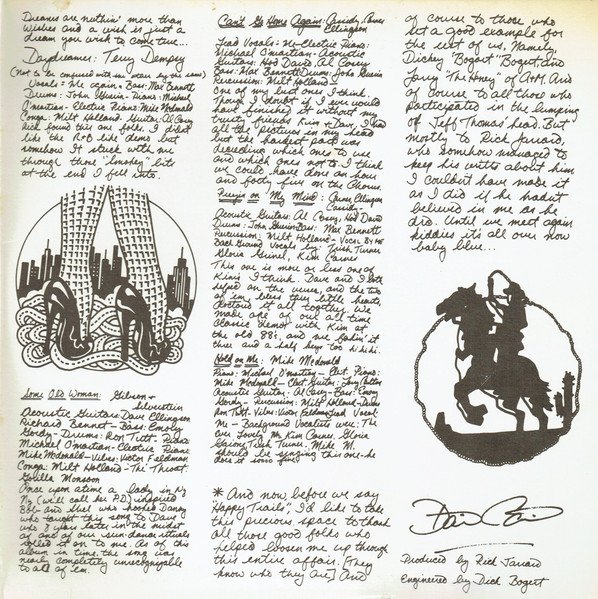 Dreams are nuthin' more than
wishes and a wish is just a
dream you wish to come true...
Daydreamer: Terry Dempsy
(Not to be confused with one wrote by the same)
Vocals = Me again - Bass: Max Bennett
Drums: John Guerin - Piano: Michael
O'martian - Electric Piano: Mike McDonald
Conga: Milt Holland - Guitar: Al Casey
Rick found this one folks. I didn't
like the demo but
somehow it stuck with me
through those "lonely" bits
at the end I fell into.
Some Old Woman: Gibson &
Silverstein
Acoustic Guitar: Dave Ellingson
Richard Bennet - Bass: Emory
Gordy - Drums: Ron Tutt - Piano
Michael O'martian - Electric Piano
Mike McDonald - Vibes: Victor Feldman
Conga: Milt Holland - The Throat:
Gorilla Monsoon
Once upon a time a lady in N.Y.
N.Y. (we'll call her P.D.) inspired
Bob and Shel who hooked Danny
who taught this song to Dave
who & wars later in the midst
of one of our sun-dance rituals
rolled it on to me. As of this
album in time, the song was
nearly completely unrecognizable
to all of 'em.
Can't Go Home Again: Cassidy, James
Ellingson
Lead Vocals = Me - Electric Piano:
Michael O'martian - Acoustic
Guitars: Hod David, Al Casey
Bass: Max Bennett Drums: John Guerin
Percussion: Milt Holland
One of my last ones I think.
Though I doubt if I ever would
have finished it without my
trusty friends Kim & Dave, I had
all the pictures in my head
but the hardest part was
deciding which one to use
and which ones not to. I think
we could have done an hour
and forty five on the Chorus.
Preyin on My Mind: James, Ellingson
Cassidy
Acoustic Guitars: Al Casey, Hod David
Drums: John Guerin Bass: Max Bennett
Percussion: Milt Holland - Vocal By Me
Background Vocals by: Trish Turner
Gloria Grinel, Kim Carnes
This one is more or less one of
Kim's I think. Dave and I both
on the verses, and the two
of 'em, bless they little hearts,
it all together. We
made one of our all time
classic demos with Kim at
the old 88's, and me it
three and a half keys too hi hi hi.
Hold on Me: Mike McDonald
Piano: Michael O'martian - Elect. Piano:
Mike McDonald - Elect. Guitar: Larry Carlton
Acoustic Guitar: Al Casey - Bass: Emory
Gordy - Percussion: Milt Holland - Drums
Ron Tutt - Vibes: Victor Feldman Lead Vocal:
Me - Background Vocalists were: The
ever lovely Ms Kim Carnes, Gloria
Grinel, Trish Turner. Mike M.
should be singing this one - he
does it sooo fine.
* And now, before we say
Happy Trails", I'd like to take
this precious space to thank
all those good folks who
helped loosen me up through
this entire affair. [They
know who they are] And
of course to those who
set a good example for
the rest of us, Namely,
Dickey "Bogart" Bogert and
Larry "The Honey" of A&M. And
of course to all those who
participated in the lumping
of Jeff Thomas' head. But
mostly to Rick Jarrard,
who somehow managed to
keep his wits about him
I couldn't have made it
as I did if he hadn't
believed in me as he
did. Until we meet again
kiddies it's all over now
baby blue...
Produced by Rick Jarrard
Engineered by Dick Bogert